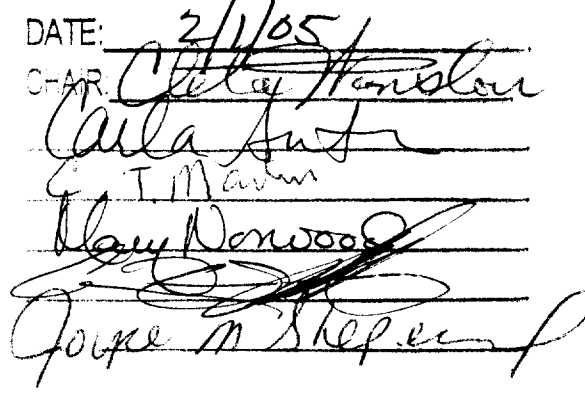 DATE: 2/1/05
CHAIR: Cleta Winslow
Carla
C. T. Martin
Mary Norwood
Joyce M Sheperd